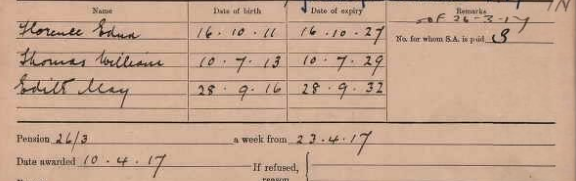 Name Date of birth Date of expiry Remarks
of 26-3-17
Florence Edna 16.10.11 16.10.27 No. for whom S.A. is paid 3
Thomas William 10.7.13 10.7.29
Edith May 28.9.16 28.9.32
Pension 26/3 a week from 23.4.17
Date awarded 10.4.17 If refused,
reason